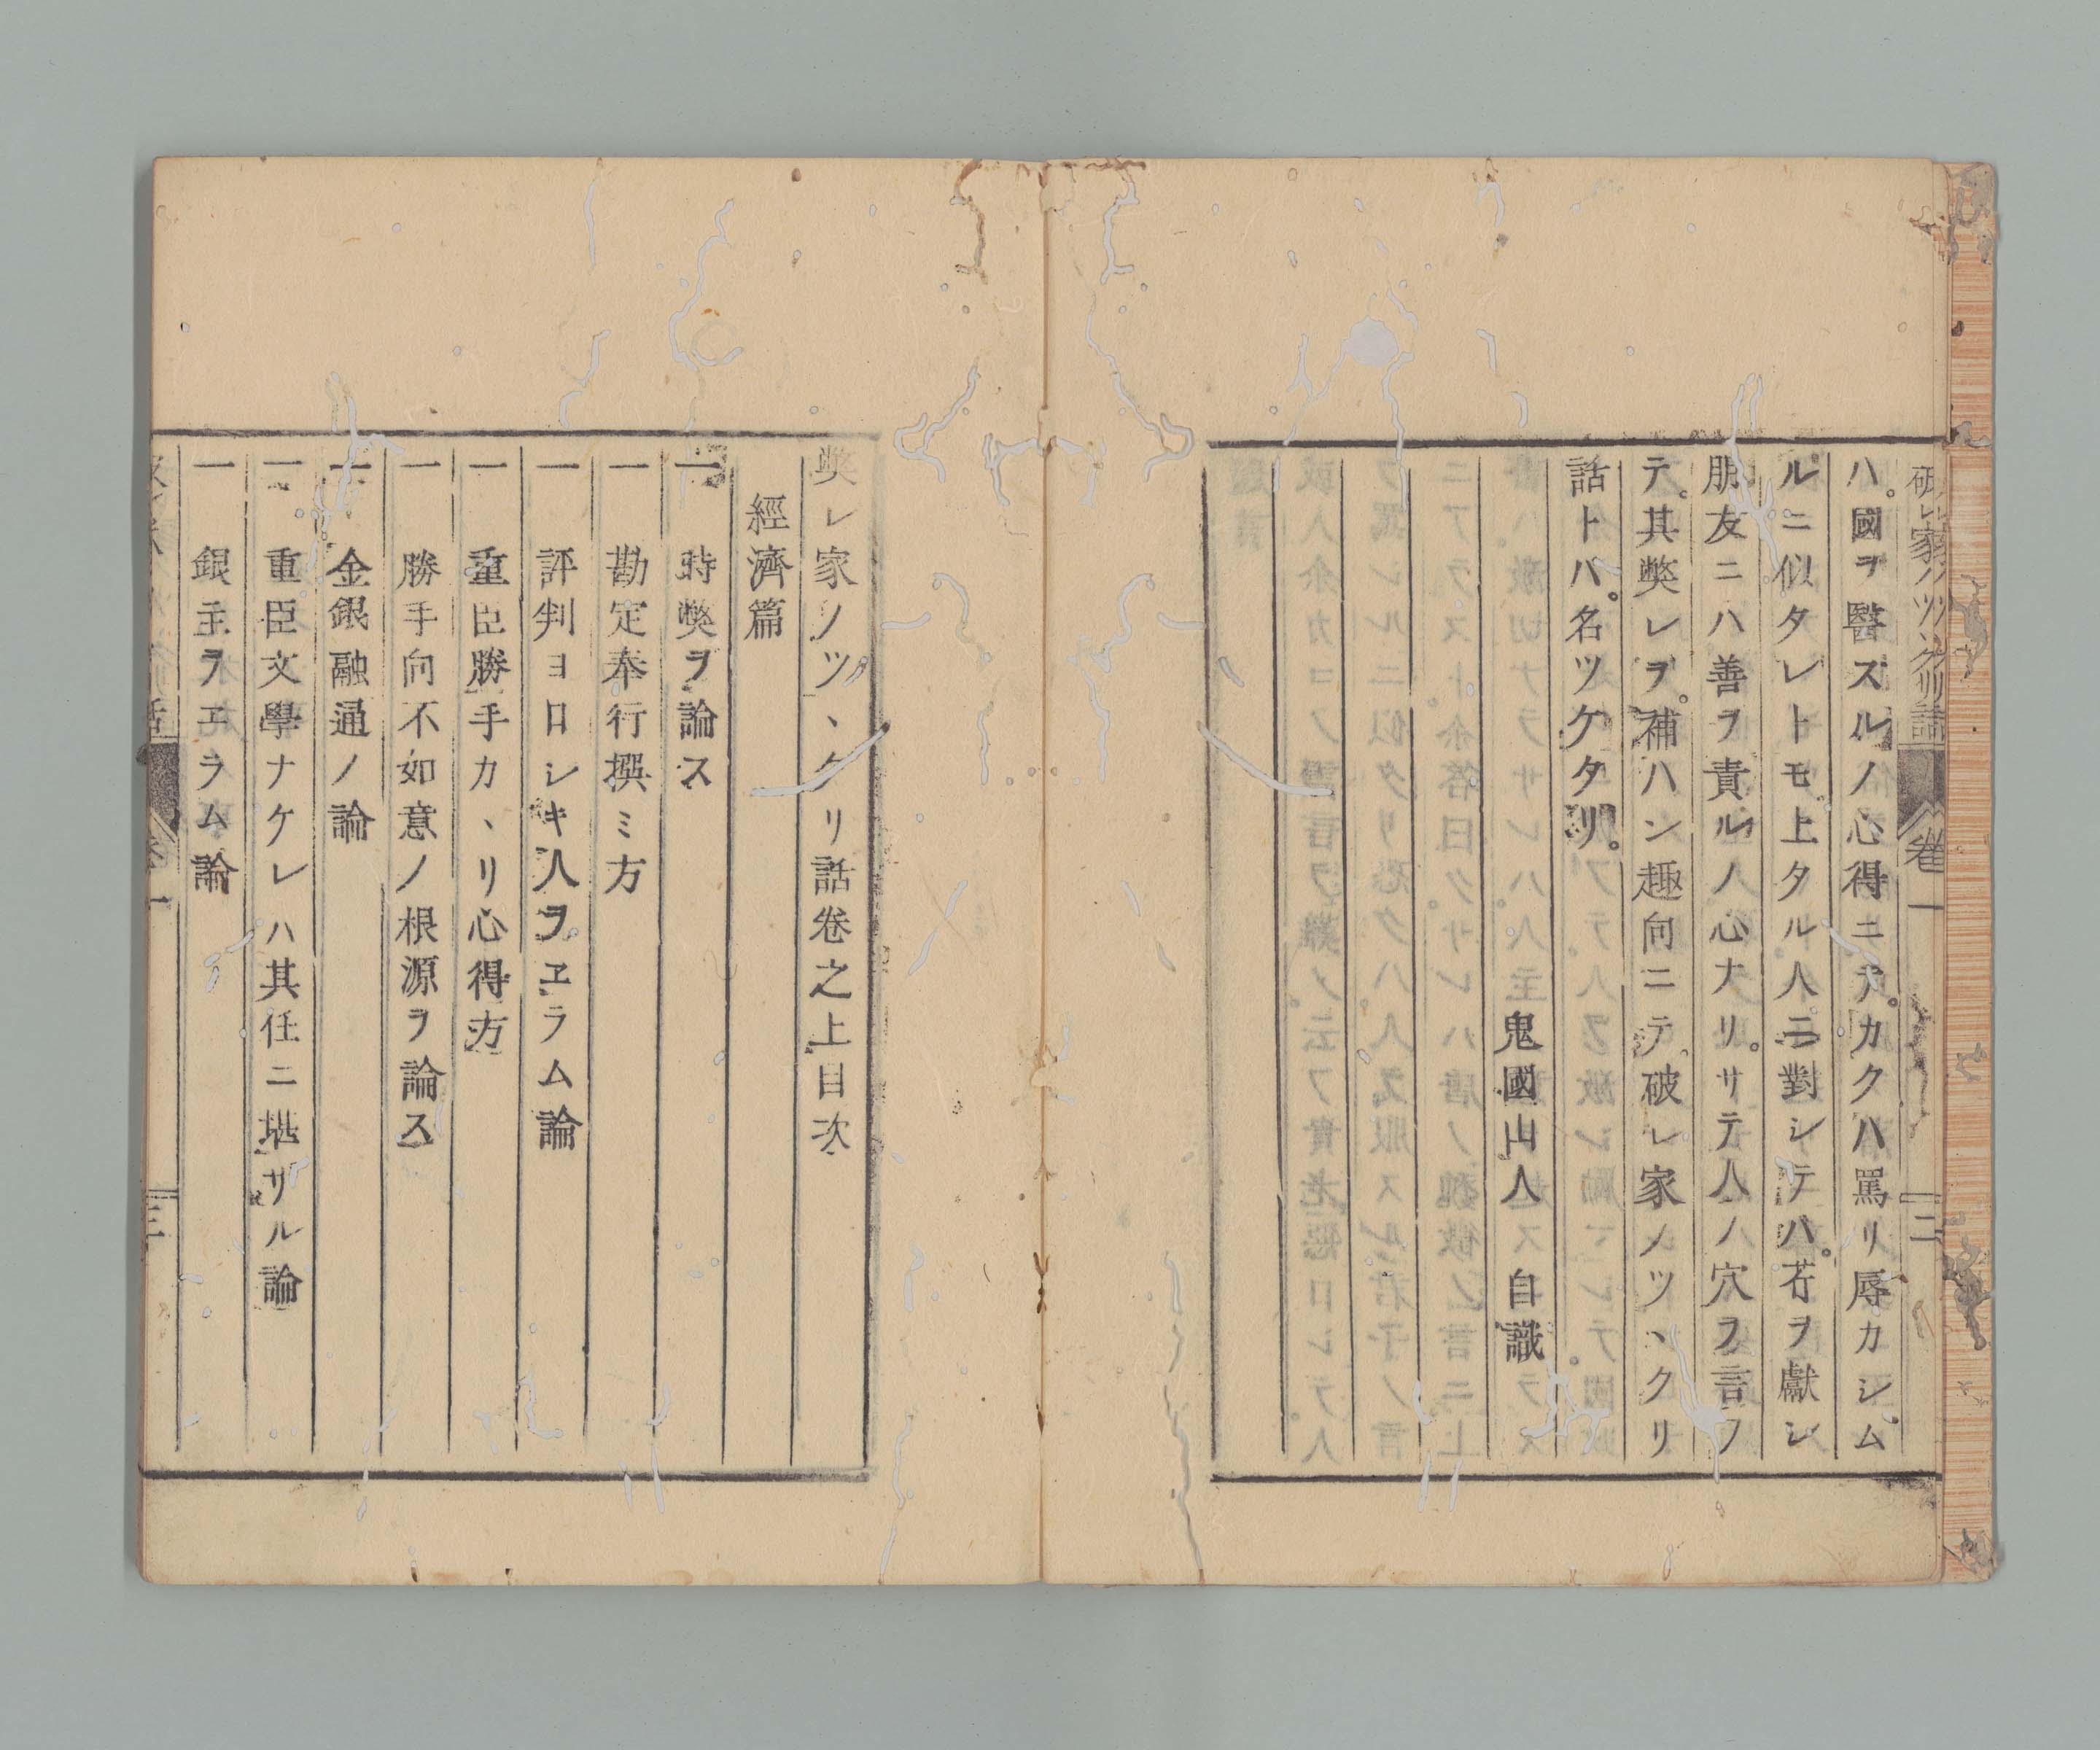 破レ家ノツヽクリ話 卷一 二
ハ。國ヲ醫スルノ心得ニテ。カクハ罵リ辱カシム
ルニ似タレトモ。上タル人ニ對シテハ。芹ヲ獻シ
朋友ニハ善ヲ責ルノ心ナリ。サテ人ノ穴ヲ言フ
テ。其弊レヲ。補ハン趣向ニテ破レ家ノツヽクリ
話トハ。名ツケタリ。
鬼國山人 自識
弊レ家ノツヽクリ話卷之上目次
經濟篇
一 時弊ヲ論ス
一 勘定奉行撰ミ方
一 評判ヨロシキ人ヲヱラム論
一 重臣勝手カヽリ心得方
一 勝手向不如意ノ根源ヲ論ス
一 金銀融通ノ論
一 重臣文學ナケレハ其任ニ堪サル論
一 銀主ヲヱラム論
卷一 三